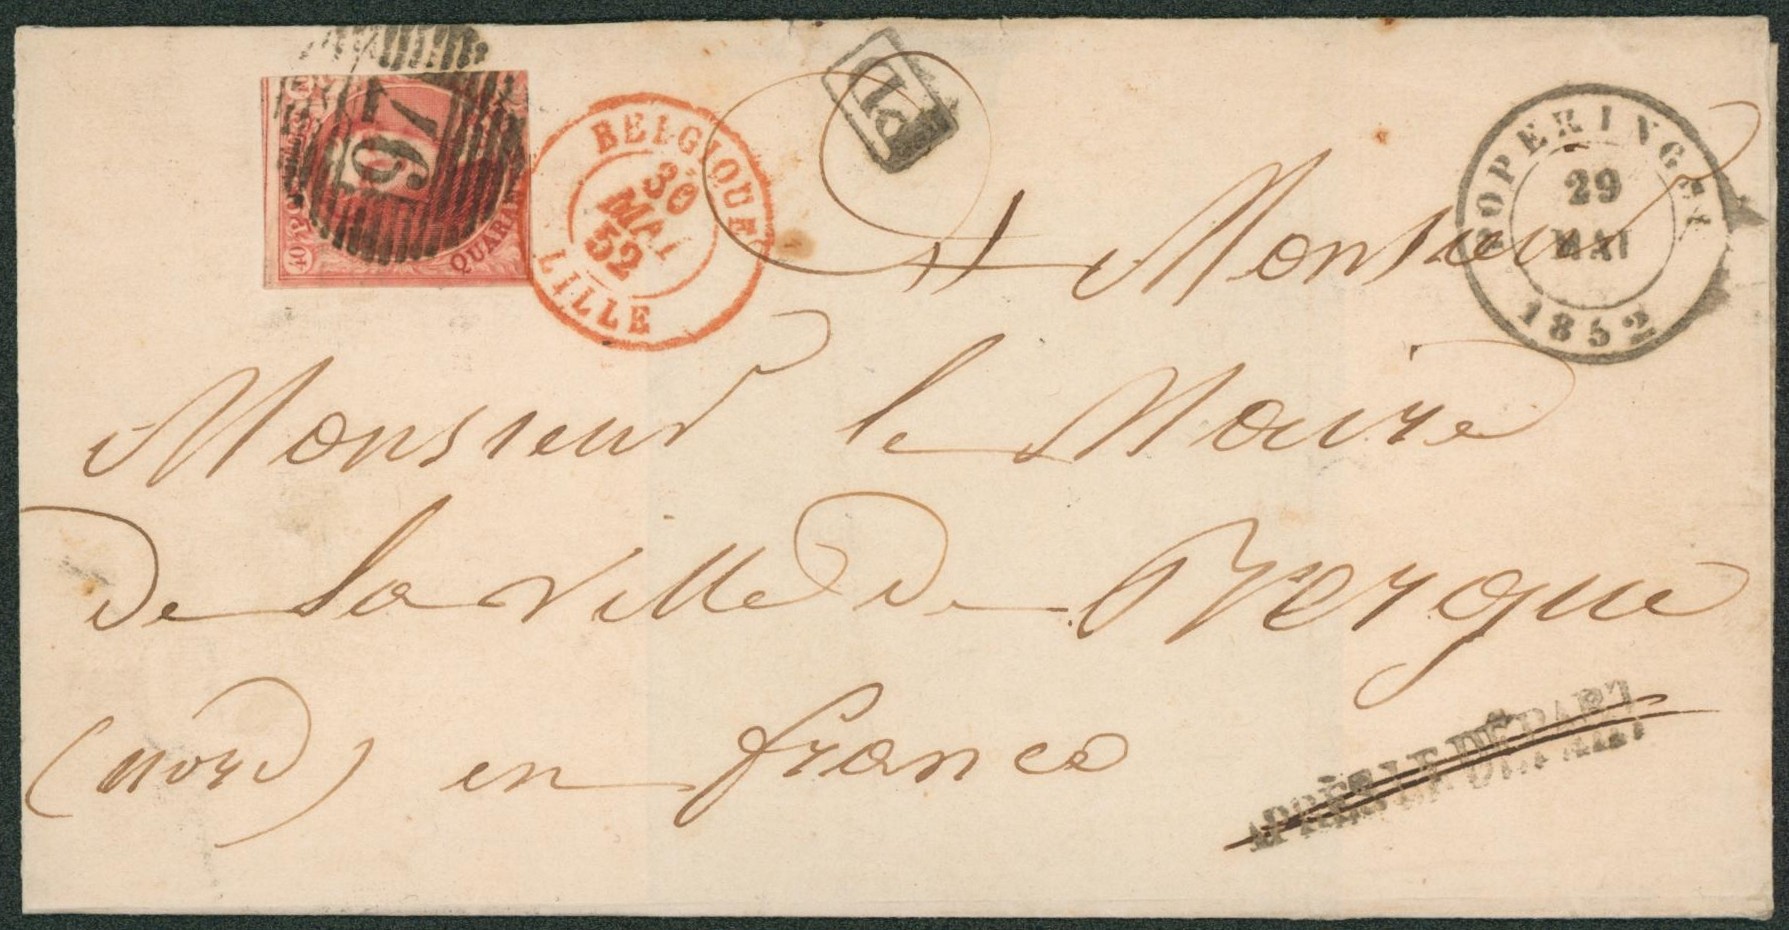 97
40
QUARAN
BELGIQUE
30
MAI
52
LILLE
PD
POPERINGHE
29
MAI
1852
A Monsieur
Monsieur le Maire
de la ville de Bergue
(nord) en france
APRÈS LE DÉPART